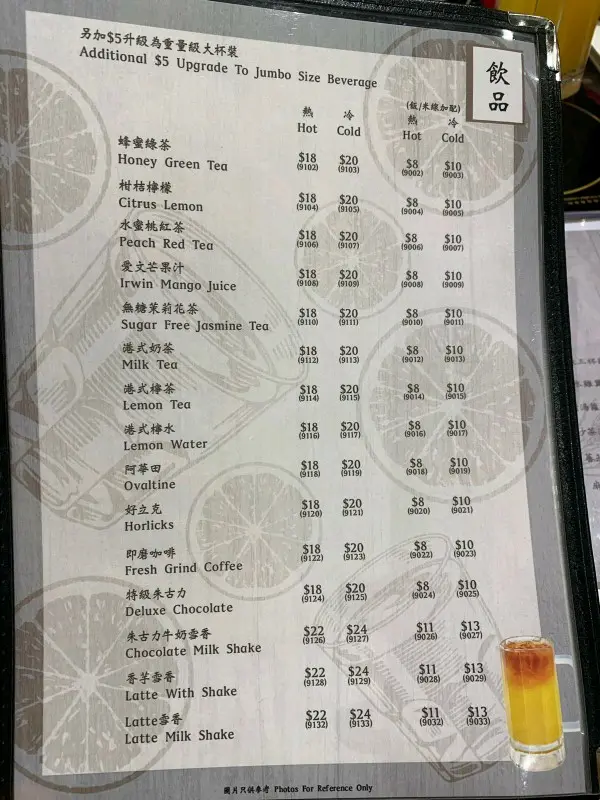 另加$5升級為重量級大杯裝
Additional $5 Upgrade To Jumbo Size Beverage
飲品
(飯/米線加配)
熱 冷 熱 冷
Hot Cold Hot Cold
蜂蜜綠茶
Honey Green Tea $18 $20 $8 $10
(9102) (9103) (9002) (9003)
柑桔檸檬
Citrus Lemon $18 $20 $8 $10
(9104) (9105) (9004) (9005)
水蜜桃紅茶
Peach Red Tea $18 $20 $8 $10
(9106) (9107) (9006) (9007)
愛文芒果汁
Irwin Mango Juice $18 $20 $8 $10
(9108) (9109) (9008) (9009)
無糖茉莉花茶
Sugar Free Jasmine Tea $18 $20 $8 $10
(9110) (9111) (9010) (9011)
港式奶茶
Milk Tea $18 $20 $8 $10
(9112) (9113) (9012) (9013)
港式檸茶
Lemon Tea $18 $20 $8 $10
(9114) (9115) (9014) (9015)
港式檸水
Lemon Water $18 $20 $8 $10
(9116) (9117) (9016) (9017)
阿華田
Ovaltine $18 $20 $8 $10
(9118) (9119) (9018) (9019)
好立克
Horlicks $18 $20 $8 $10
(9120) (9121) (9020) (9021)
即磨咖啡
Fresh Grind Coffee $18 $20 $8 $10
(9122) (9123) (9022) (9023)
特級朱古力
Deluxe Chocolate $18 $20 $8 $10
(9124) (9125) (9024) (9025)
朱古力牛奶雪香
Chocolate Milk Shake $22 $24 $11 $13
(9126) (9127) (9026) (9027)
香芋雪香
Latte With Shake $22 $24 $11 $13
(9128) (9129) (9028) (9029)
Latte雪香
Latte Milk Shake $22 $24 $11 $13
(9132) (9133) (9032) (9033)
圖片只供參考 Photos For Reference Only